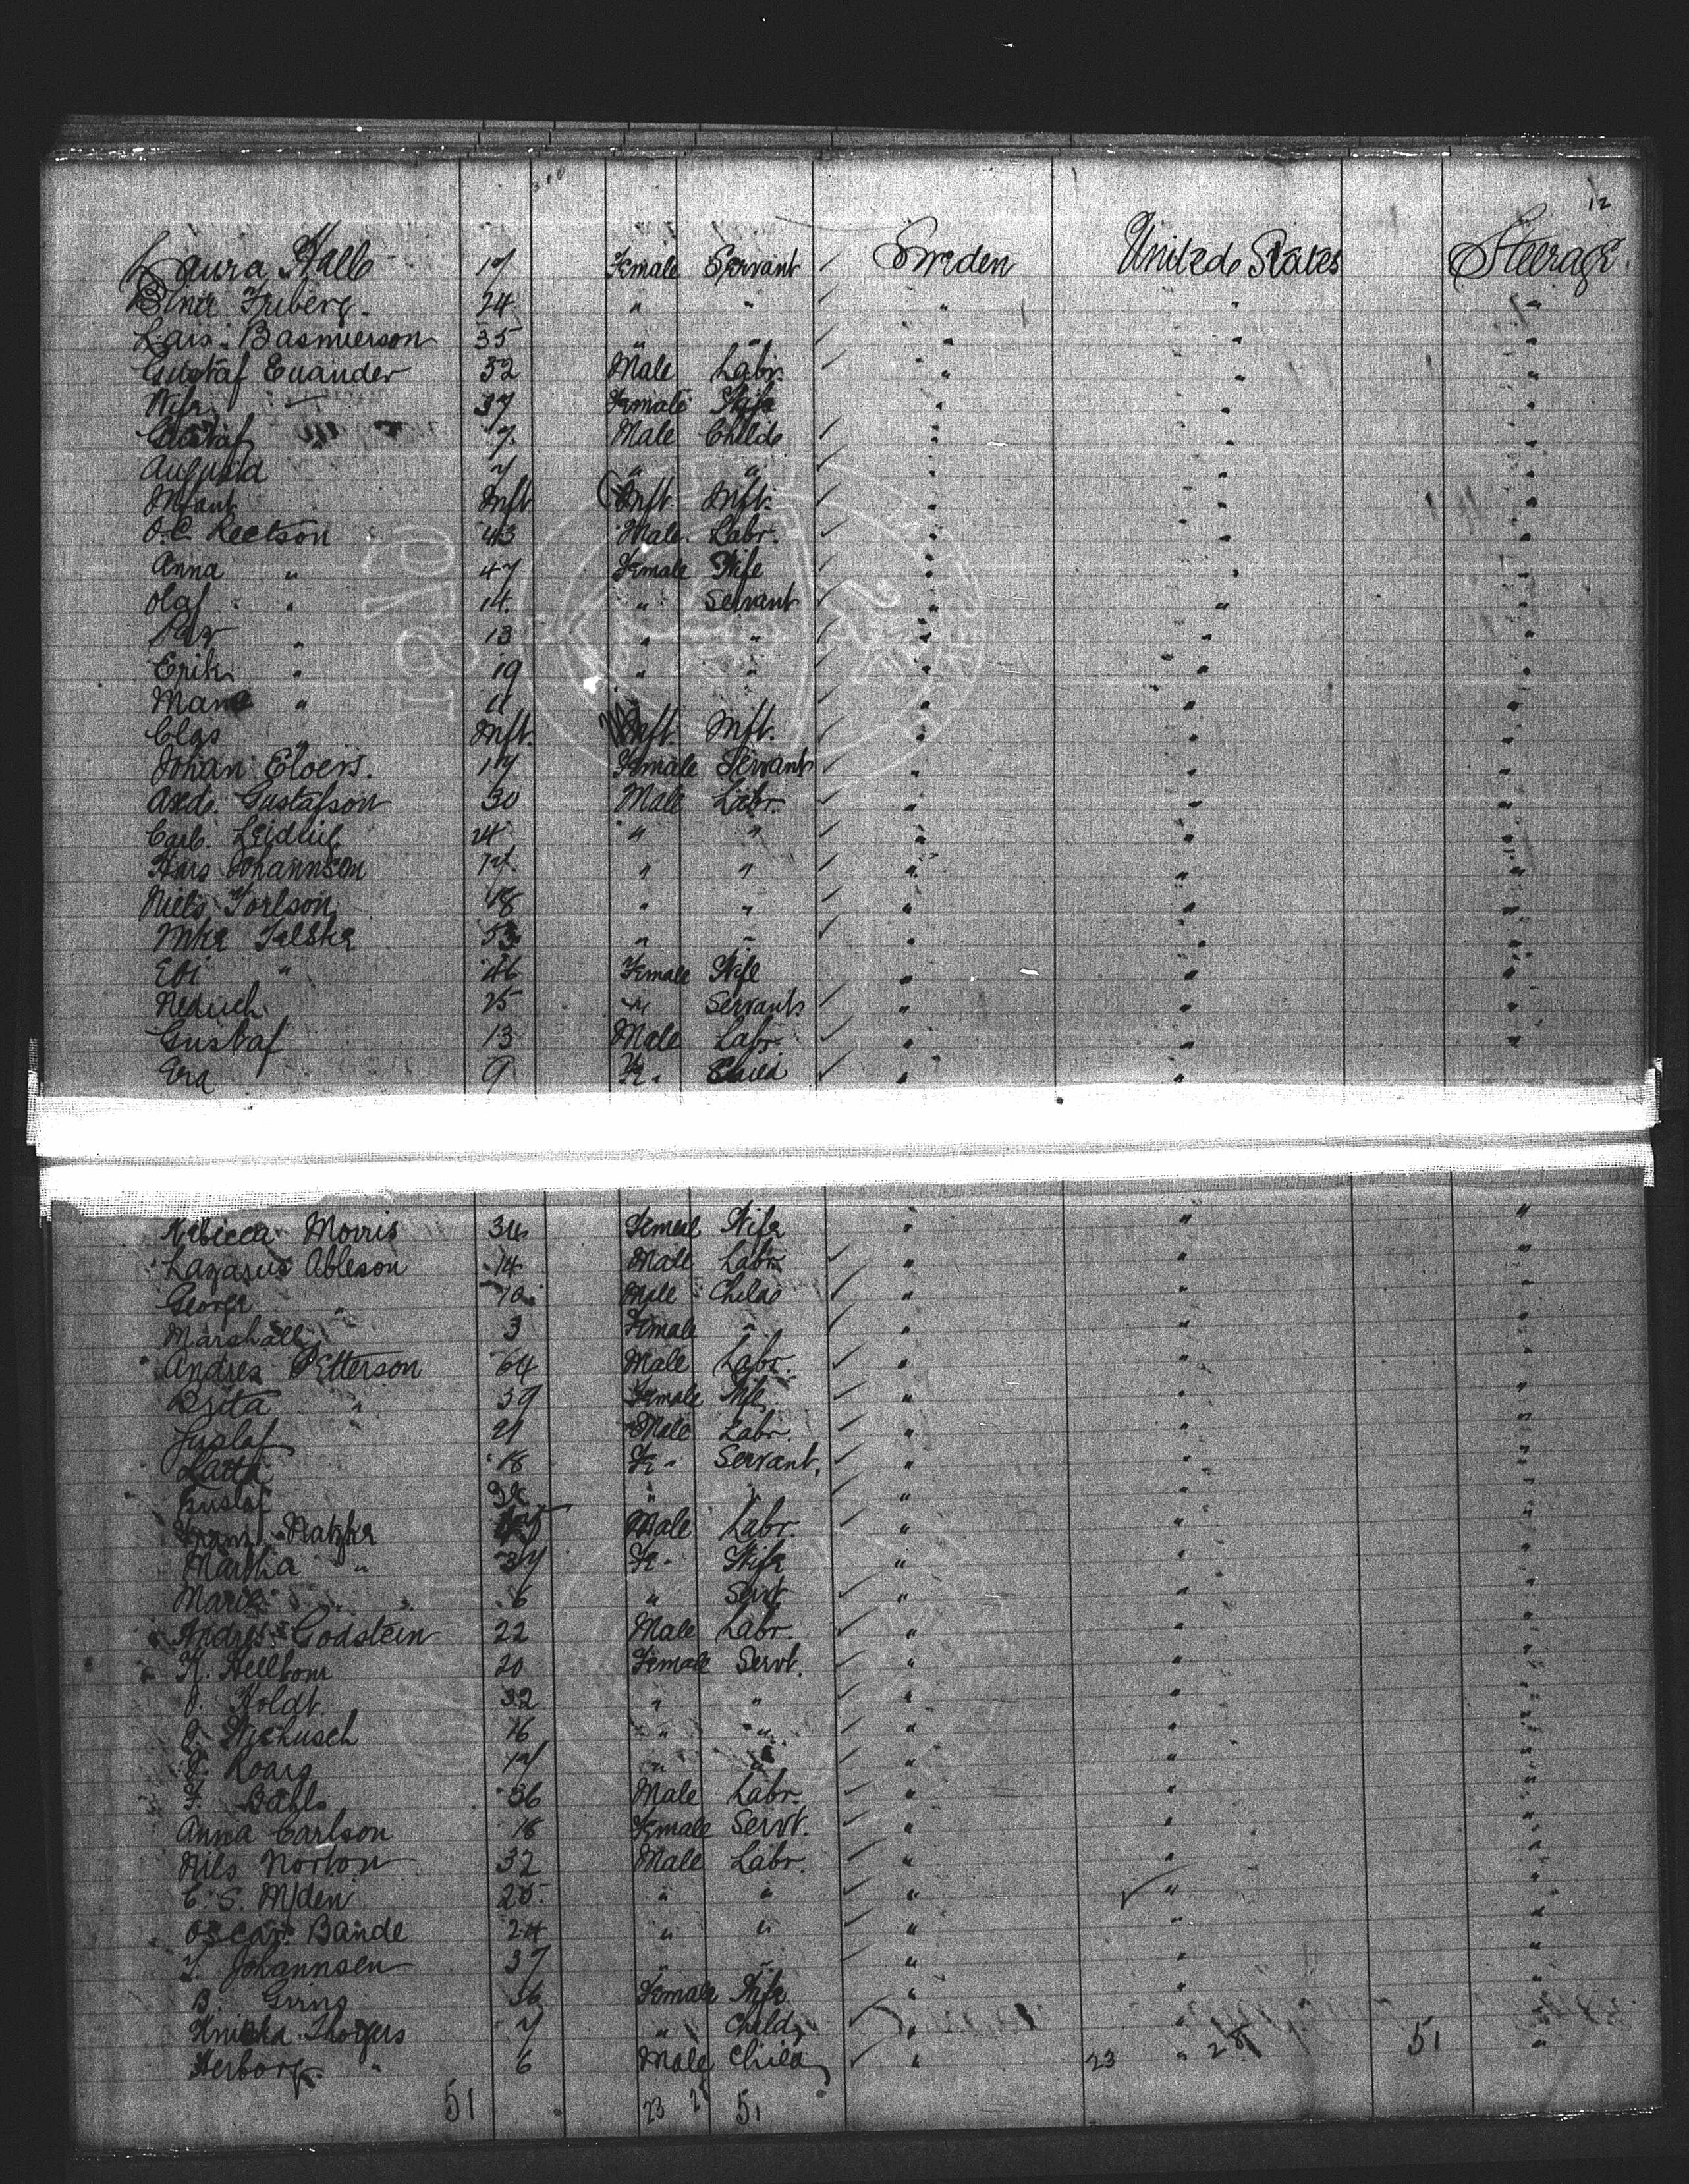 12
Laura Halb 17 Female Servant ✓ Sweden United States Steerage.
Friberg. 24 " " ✓ " " "
Lars. Basmuerson 35 " " ✓ " " "
Gustaf Euander 32 Male Labr. ✓ " " "
Wife — 37 Female Wife " " "
Gustaf 7 Male Child ✓ " " "
Augusta " " ✓ " " "
Infant Inft Inft. Inft. ✓ " " "
O.C. Leetson 43 Male Labr. ✓ " " "
Anna " 47 Female Wife " " "
Olaf " 14 " Servant ✓ " " "
" 13 " " ✓ " " "
Erik " 19 " " ✓ " " "
" 11 ✓ " " "
Clas " Inft. Inft. Inft. ✓ " " "
Johan Eloers. 17 Female Servant ✓ " " "
Axd. Gustafson 30 Male Labr. ✓ " " "
Carl. 24 " " ✓ " " "
Hars Johannson 17 " " ✓ " " "
Niels Torlson 18 " " ✓ " " "
53 " " ✓ " " "
" 46 Female Wife " " "
25 " Servant ✓ " " "
Gustaf 13 Male Labr. ✓ " " "
Era 9 Fe. Child ✓ " "
Rebicca Morris 34 Femal Wife " " "
Lazarus Ableson 14 Male Labr. ✓ " " "
George " 10 Male Child ✓ " " "
Marshall " 3 Female " ✓ " " "
Andres Petterson 64 Male Labr. ✓ " " "
Brita " 39 Female Wife ✓ " " "
Gustaf 21 Male Labr. ✓ " " "
18 Fe. Servant. ✓ " " "
Gustaf " " ✓ " " "
Franz Natzke Male Labr. ✓ " " "
Martha " 37 Fe. Wife " " "
Marie " 6 " Servt. ✓ " " "
Andres Godstein 22 Male Labr. ✓ " " "
H. Hellbom 20 Female Servt. ✓ " " "
J. Holdt. 32 " " ✓ " " "
16 " " ✓ " " "
17 " " ✓ " " "
F. Bahls 36 Male Labr. ✓ " " "
Anna Carlson 18 Female Servt. ✓ " " "
Nils Norton 32 Male Labr. ✓ " " "
C. S. Myden 25. " " ✓ " ✓ " "
Oscar Bande 24 " " ✓ " " "
J. Johannsen 37 " " ✓ " " "
B. 36 Female Wife " " "
Thogers 7 " Child ✓ " " "
Herborg. " 6 Male Child ✓ " 23 " 28 51 "
51 23 28 51